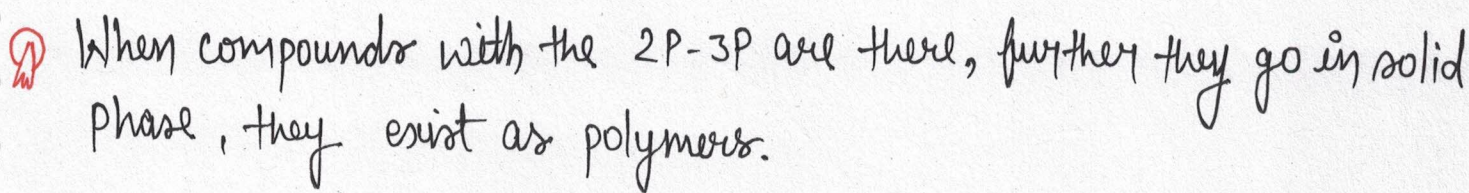 When compounds with the 2P-3P are there, further they go in solid
phase, they exist as polymers.